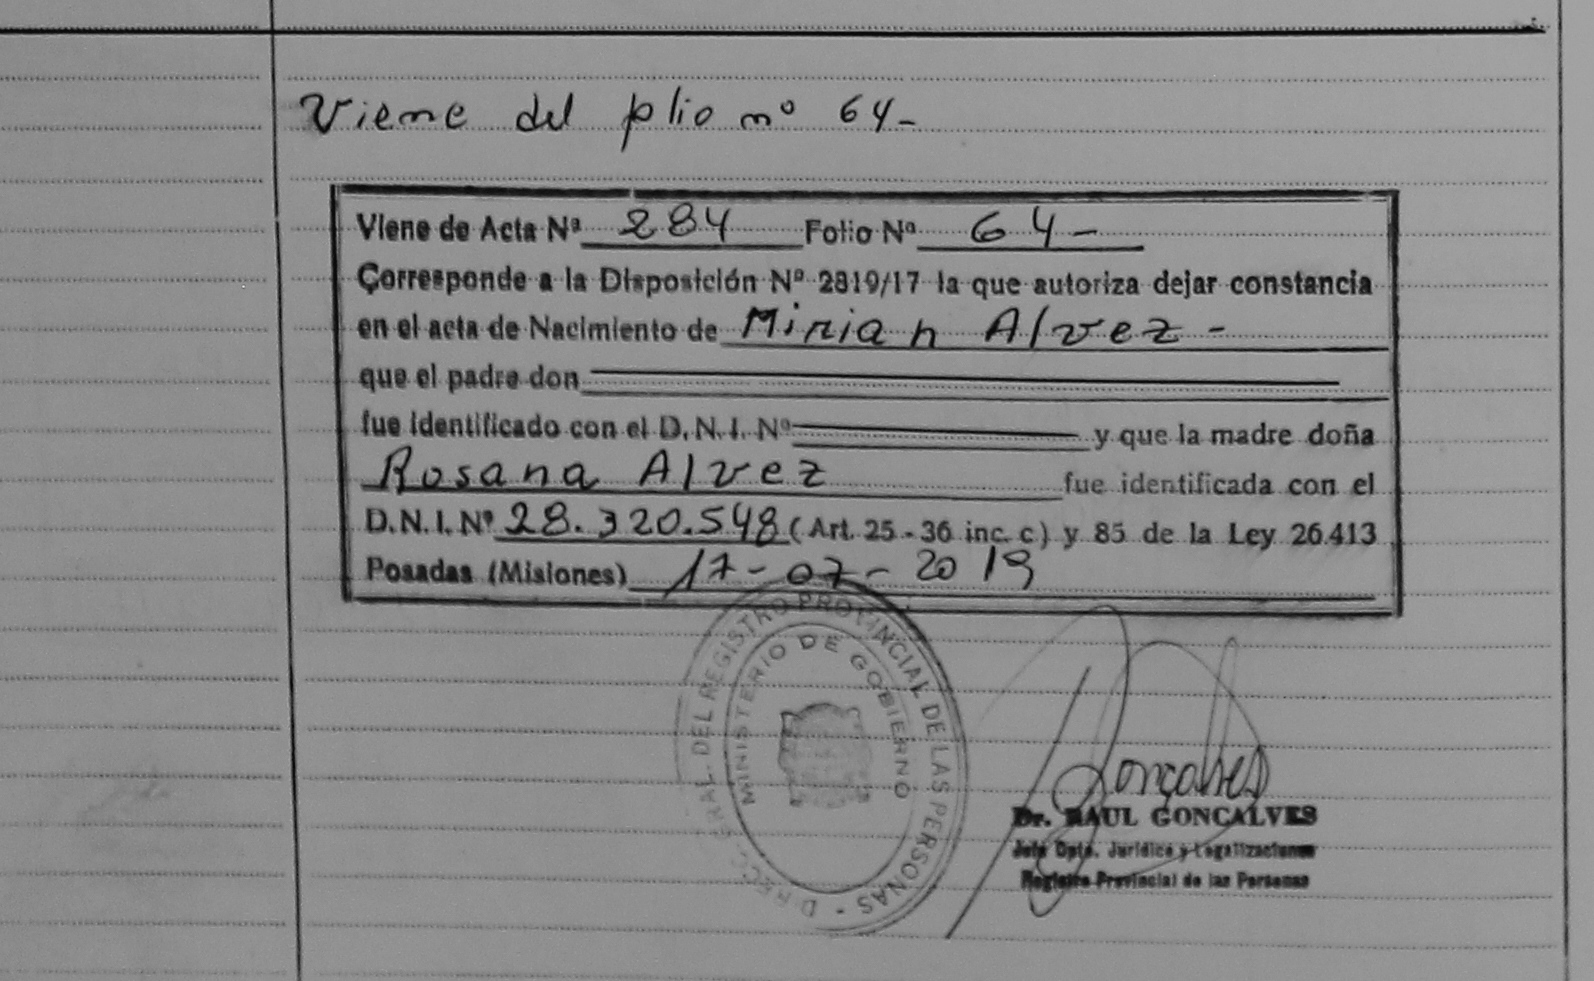 Viene del folio nº 64-
Viene de Acta Nº 284 Folio Nº 64-
Corresponde a la Disposición Nº 2819/17 la que autoriza dejar constancia
en el acta de Nacimiento de Mirian Alvez-
que el padre don
fue identificado con el D.N.I. Nº y que la madre doña
Rosana Alvez fue identificada con el
D.N.I. Nº 28.320.548 (Art. 25-36 inc. c) y 85 de la Ley 26.413
Posadas (Misiones) 17-07-2019
DIRECC. GRAL. DEL REGISTRO PROVINCIAL DE LAS PERSONAS -
MINISTERIO DE GOBIERNO
Goncalves
Dr. RAUL GONCALVES
Jefe Dpto. Jurídico y Legalizaciones
Registro Provincial de las Personas